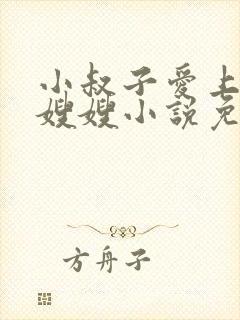 小叔子爱上
嫂嫂小說免
方舟子